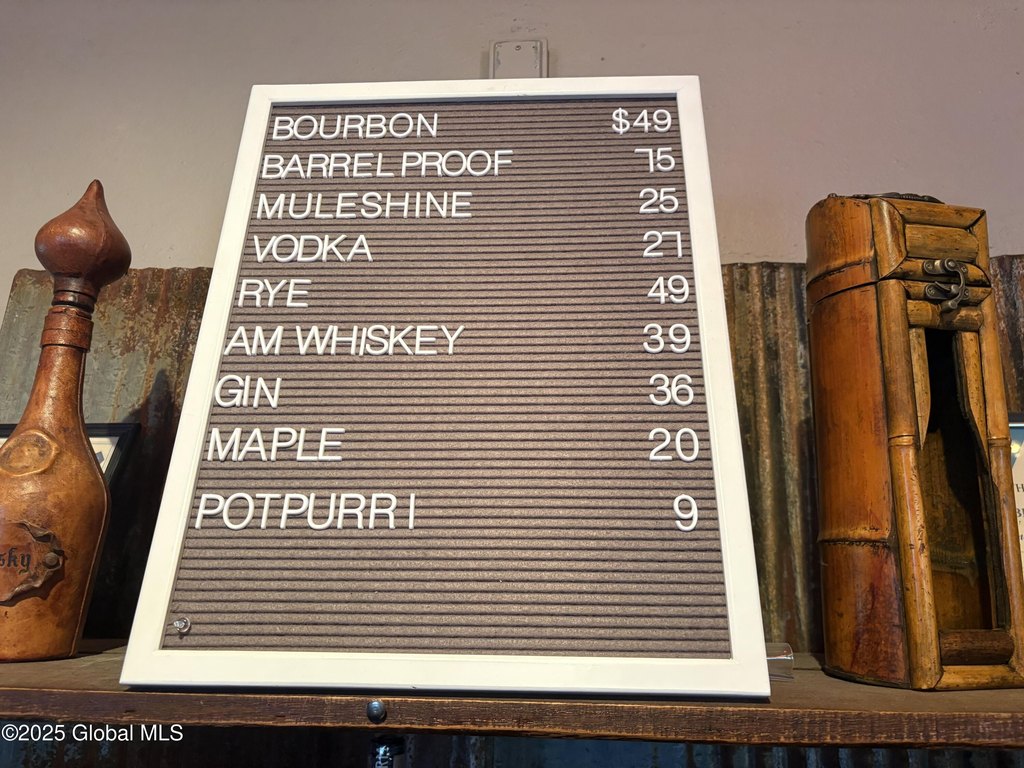 BOURBON $49
BARREL PROOF 75
MULESHINE 25
VODKA 27
RYE 49
AM WHISKEY 39
GIN 36
MAPLE 20
POTPURRI 9
©2025 Global MLS